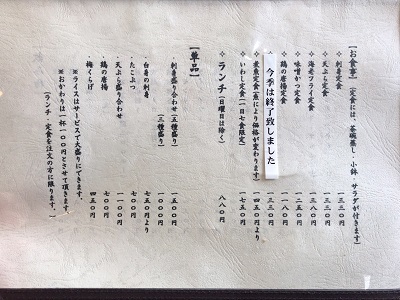 【お食事】(定食には、茶碗蒸し・小鉢 サラダが付きます)
✧刺身定食 一三三〇円
✧天ぷら定食 一三三〇円
✧海老フライ定食 一三八〇円
✧味噌かつ定食 一二五〇円
✧鶏の唐揚定食 一一八〇円
今季は終了致しました 一三三〇円
✧煮魚定食(魚により価格が変わります) 一四五〇円より
✧いわし定食(一日七食限定) 一七五〇円
✧ランチ(日曜日は除く) 八八〇円
【単品】
・刺身盛り合わせ(五種盛り) 一五〇〇円
(三種盛り) 一〇〇〇円
・白身の刺身 七五〇円より
・たこぶつ 七〇〇円
・天ぷら盛り合わせ 一一〇〇円
・鶏の唐揚 七〇〇円
・梅くらげ 四五〇円
※ライスはサービスで大盛りにできます。
※おかわりは一杯一〇〇円とさせて頂きます。
(ランチ・定食を注文の方に限ります。)